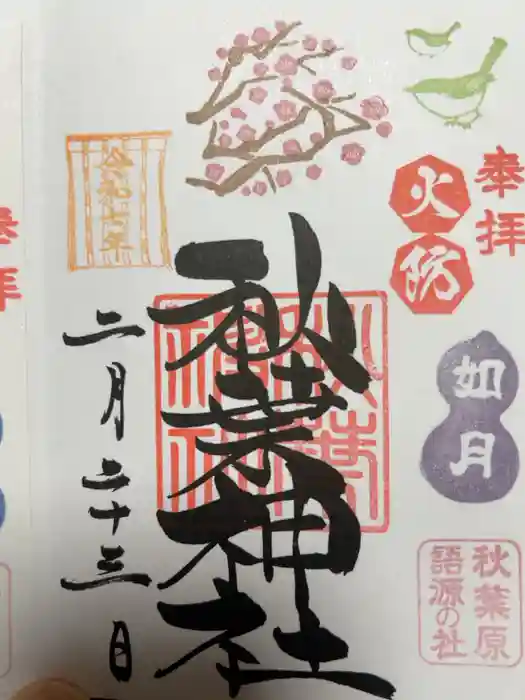 奉拝
火伏
如月
秋葉原
語源の社
秋葉神社
令和七年
二月二十三日
奉拝